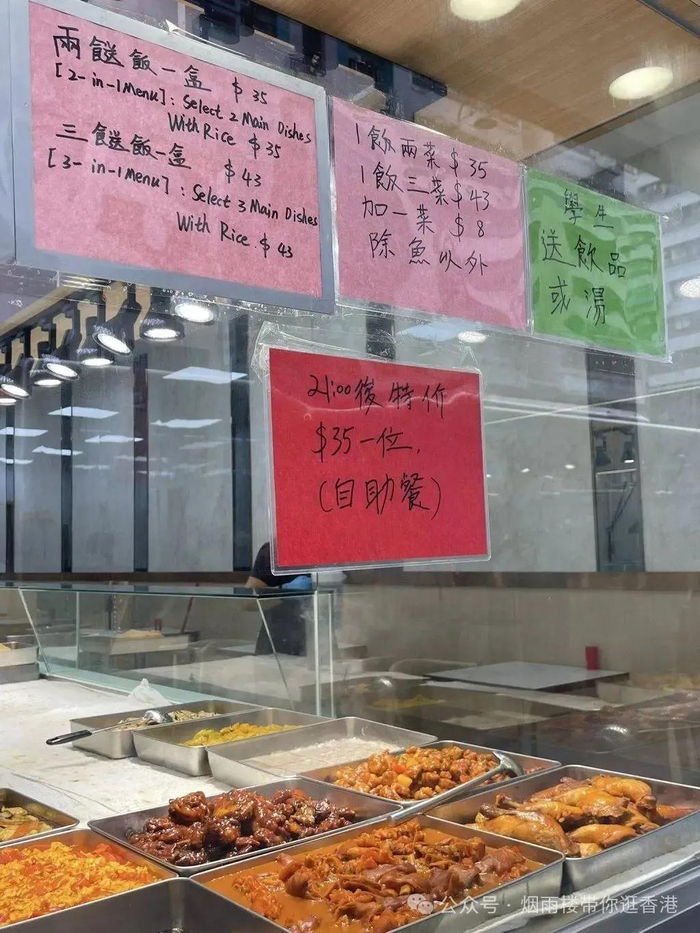 兩餸飯一盒 $35
[2-in-1 Menu]: Select 2 Main Dishes
With Rice $35
三餸飯一盒 $43
[3-in-1 Menu]: Select 3 Main Dishes
With Rice $43
1飲兩菜$35
1飲三菜$43
加一菜 $8
除魚以外
學生
送飲品
或湯
21:00後特价
$35一位,
(自助餐)
公众号·烟雨楼带你逛香港